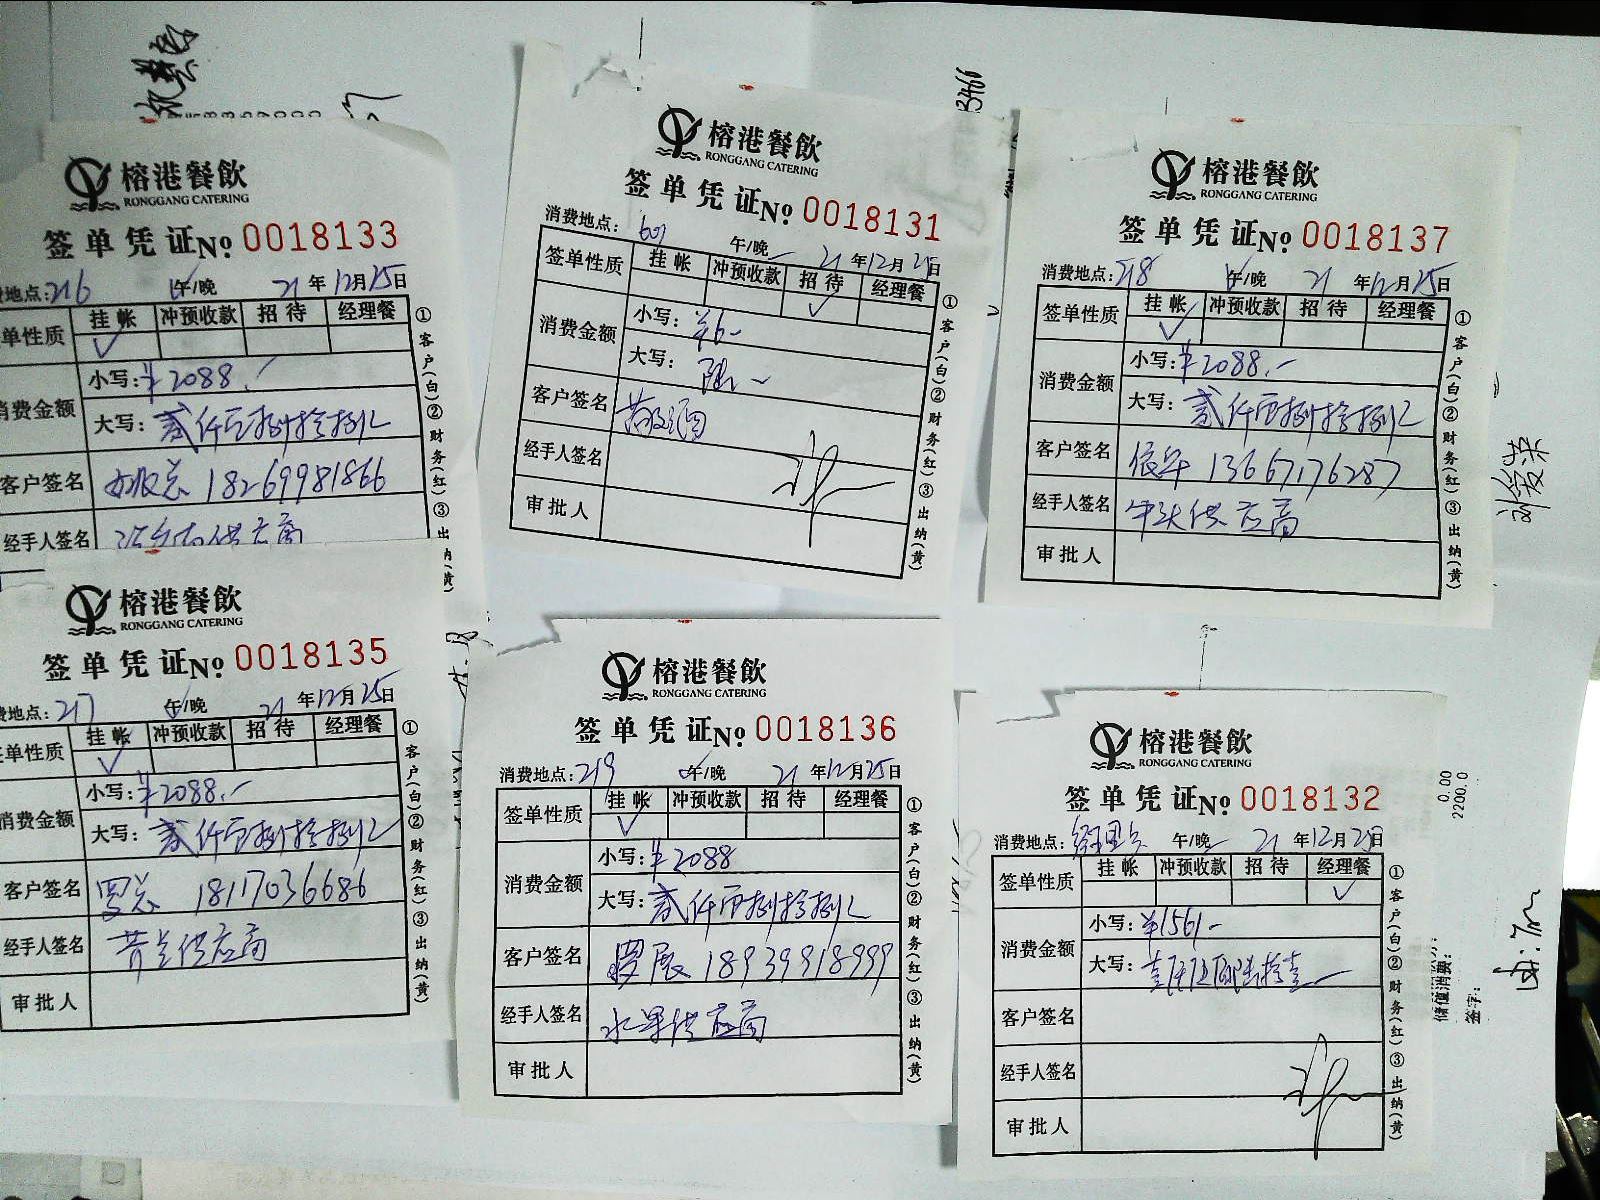 榕港餐飲
RONGGANG CATERING
签单凭证No 0018133
地点: 216 午/晚 21年12月25日
单性质 挂帐 冲预收款 招待 经理餐
✓
消费金额 小写: ¥2088.-
大写: 贰仟零捌拾捌
客户签名 18269981866
经手人签名 供应商
①客户(白)②财务(红)③出纳(黄)
榕港餐飲
RONGGANG CATERING
签单凭证No 0018131
消费地点: 601 午/晚 21年12月25日
签单性质 挂帐 冲预收款 招待 经理餐
✓
消费金额 小写: ¥6-
大写: 陆
客户签名 敬酒
经手人签名
审批人
①客户(白)②财务(红)③出纳(黄)
榕港餐飲
RONGGANG CATERING
签单凭证No 0018137
消费地点: 218 午/晚 21年12月25日
签单性质 挂帐 冲预收款 招待 经理餐
✓
消费金额 小写: ¥2088.-
大写: 贰仟零捌拾捌
客户签名 13667176287
经手人签名 供应商
审批人
①客户(白)②财务(红)③出纳(黄)
榕港餐飲
RONGGANG CATERING
签单凭证No 0018135
地点: 217 午/晚 21年12月25日
单性质 挂帐 冲预收款 招待 经理餐
✓
消费金额 小写: ¥2088.-
大写: 贰仟零捌拾捌
客户签名 罗总 18117036686
经手人签名 供应商
审批人
①客户(白)②财务(红)③出纳(黄)
榕港餐飲
RONGGANG CATERING
签单凭证No 0018136
消费地点: 219 午/晚 21年12月25日
签单性质 挂帐 冲预收款 招待 经理餐
✓
消费金额 小写: ¥2088
大写: 贰仟零捌拾捌
客户签名 18939918999
经手人签名 水果供应商
审批人
①客户(白)②财务(红)③出纳(黄)
榕港餐飲
RONGGANG CATERING
签单凭证No 0018132
消费地点: 午/晚 21年12月25日
签单性质 挂帐 冲预收款 招待 经理餐
✓
消费金额 小写: ¥1561-
大写: 壹仟伍佰陆拾壹
客户签名
经手人签名
审批人
①客户(白)②财务(红)③出纳(黄)
3466
刘爱荣
0.00
2200.0
储值消费:
签字: